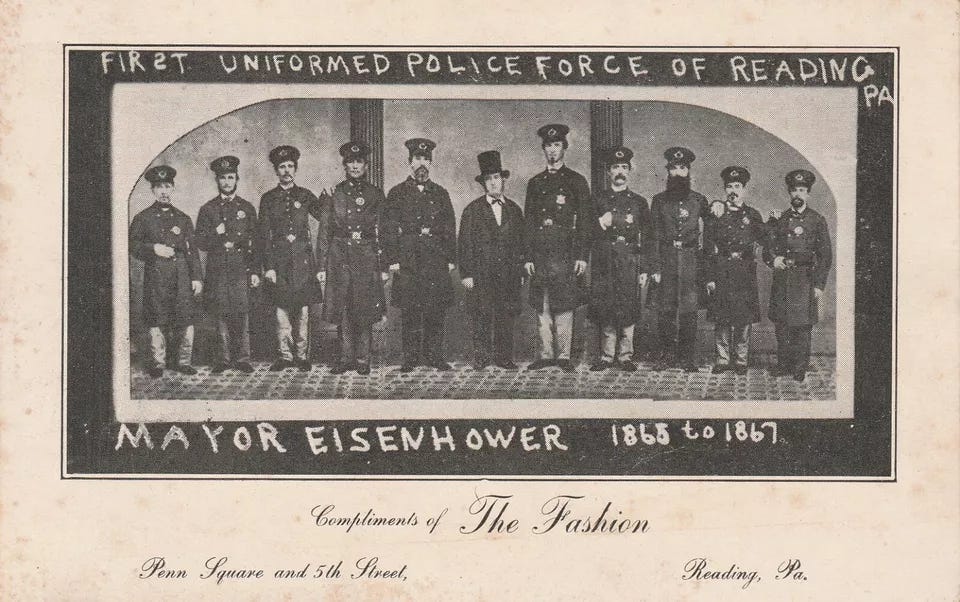 FIRST UNIFORMED POLICE FORCE OF READING
PA
MAYOR EISENHOWER 1865 to 1867
Compliments of The Fashion
Penn Square and 5th Street, Reading, Pa.